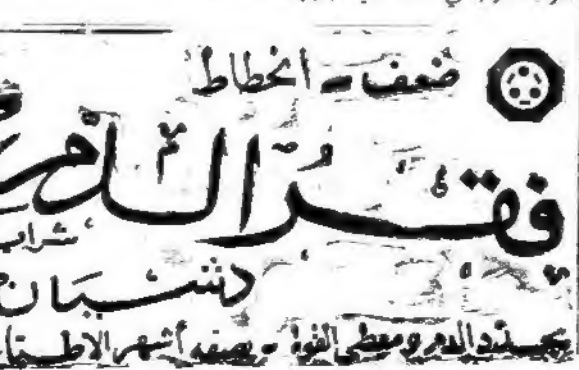 ضعف - انحطاط
فقر الدم
شراب
دشبيان
يجدد الدم ومعطي القوا - يصفه أشهر الاطباء